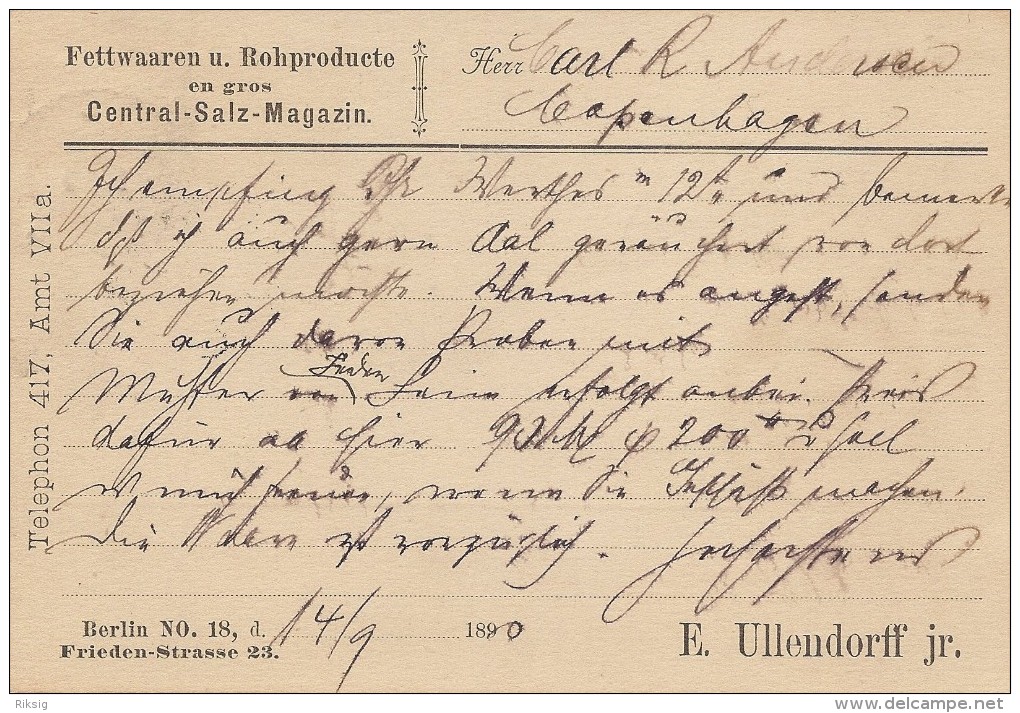 Fettwaaren u. Rohproducte
en gros
Central-Salz-Magazin.
Herr Carl R. Andersen
Copenhagen
Telephon 417, Amt VIIa.
Ich empfing Ihr Werthes 12 und bemerke
daß ich auch gern Aal geräuchert von dort
beziehen möchte. Wenn es angeht, senden
Sie auch davon Proben mit
Muster von Feder Leim erfolgt anbei. Preis
dafür ab hier 93 M 200
mich freuen, wenn Sie Geschäft machen.
Die Ware ist vorzüglich. Hochachtend
Berlin NO. 18, d. 14/9 1890
Frieden-Strasse 23.
E. Ullendorff jr.
Riksig
delcampe.net